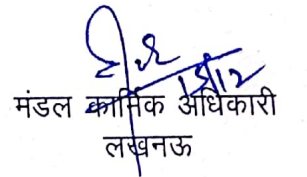 मंडल कार्मिक अधिकारी
लखनऊ